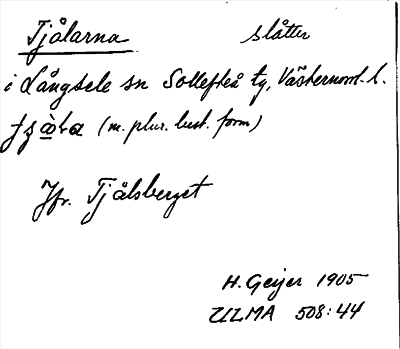 Tjålarna slåtter
i Långsele sn Sollefteå tg, Västernorrl. l.
(m. plur. best. form)
Jfr. Tjålsberget
H. Geijer 1905
ULMA 508:44